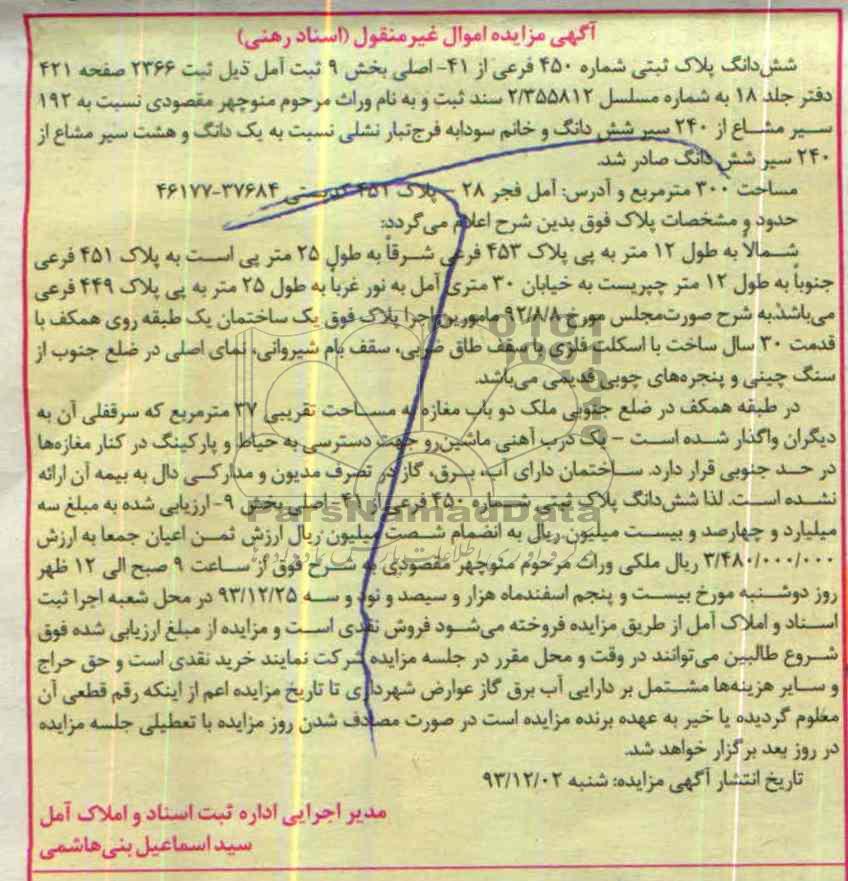 آگهی مزایده اموال غیرمنقول (اسناد رهنی)
شش‌دانگ پلاک ثبتی شماره ۴۵۰ فرعی از ۴۱- اصلی بخش ۹ ثبت آمل ذیل ثبت ۲۳۶۶ صفحه ۴۲۱
دفتر جلد ۱۸ به شماره مسلسل ۲/۳۵۵۸۱۲ سند ثبت و به نام وراث مرحوم منوچهر مقصودی نسبت به ۱۹۲
سیر مشاع از ۲۴۰ سیر شش دانگ و خانم سودابه فرج‌تبار نشلی نسبت به یک دانگ و هشت سیر مشاع از
۲۴۰ سیر شش دانگ صادر شد.
مساحت ۳۰۰ مترمربع و آدرس: آمل فجر ۲۸ – پلاک ۴۵۱ کدپستی ۳۷۶۸۴-۴۶۱۷۷
حدود و مشخصات پلاک فوق بدین شرح اعلام می‌گردد:
شمالاً به طول ۱۲ متر به پی پلاک ۴۵۳ فرعی شرقاً به طول ۲۵ متر پی است به پلاک ۴۵۱ فرعی
جنوباً به طول ۱۲ متر چپریست به خیابان ۳۰ متری آمل به نور غرباً به طول ۲۵ متر به پی پلاک ۴۴۹ فرعی
می‌باشد. به شرح صورت‌مجلس مورخ ۹۲/۸/۸ مامورین اجرا پلاک فوق یک ساختمان یک طبقه روی همکف با
قدمت ۳۰ سال ساخت با اسکلت فلزی با سقف طاق ضربی، سقف بام شیروانی، نمای اصلی در ضلع جنوب از
سنگ چینی و پنجره‌های چوبی قدیمی می‌باشد.
در طبقه همکف در ضلع جنوبی ملک دو باب مغازه به مساحت تقریبی ۳۷ مترمربع که سرقفلی آن به
دیگران واگذار شده است – یک درب آهنی ماشین‌رو جهت دسترسی به حیاط و پارکینگ در کنار مغازه‌ها
در حد جنوبی قرار دارد. ساختمان دارای آب، برق، گاز در تصرف مدیون و مدارکی دال به بیمه آن ارائه
نشده است. لذا شش‌دانگ پلاک ثبتی شماره ۴۵۰ فرعی از ۴۱- اصلی بخش ۹- ارزیابی شده به مبلغ سه
میلیارد و چهارصد و بیست میلیون ریال به انضمام شصت میلیون ریال ارزش ثمن اعیان جمعا به ارزش
۳/۴۸۰/۰۰۰/۰۰۰ ریال ملکی وراث مرحوم منوچهر مقصودی به شرح فوق از ساعت ۹ صبح الی ۱۲ ظهر
روز دوشنبه مورخ بیست و پنجم اسفندماه هزار و سیصد و نود و سه ۹۳/۱۲/۲۵ در محل شعبه اجرا ثبت
اسناد و املاک آمل از طریق مزایده فروخته می‌شود فروش نقدی است و مزایده از مبلغ ارزیابی شده فوق
شروع طالبین می‌توانند در وقت و محل مقرر در جلسه مزایده شرکت نمایند خرید نقدی است و حق حراج
و سایر هزینه‌ها مشتمل بر دارایی آب برق گاز عوارض شهرداری تا تاریخ مزایده اعم از اینکه رقم قطعی آن
معلوم گردیده یا خیر به عهده برنده مزایده است در صورت مصادف شدن روز مزایده با تعطیلی جلسه مزایده
در روز بعد برگزار خواهد شد.
تاریخ انتشار آگهی مزایده: شنبه ۹۳/۱۲/۰۲
مدیر اجرایی اداره ثبت اسناد و املاک آمل
سید اسماعیل بنی‌هاشمی
ParsNamadData